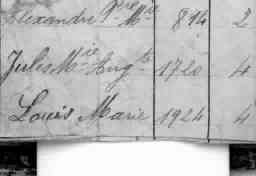 Alexandre Pre Mie 814 2
Jules Mie Augte 1720 4
Louis Marie 1924 4